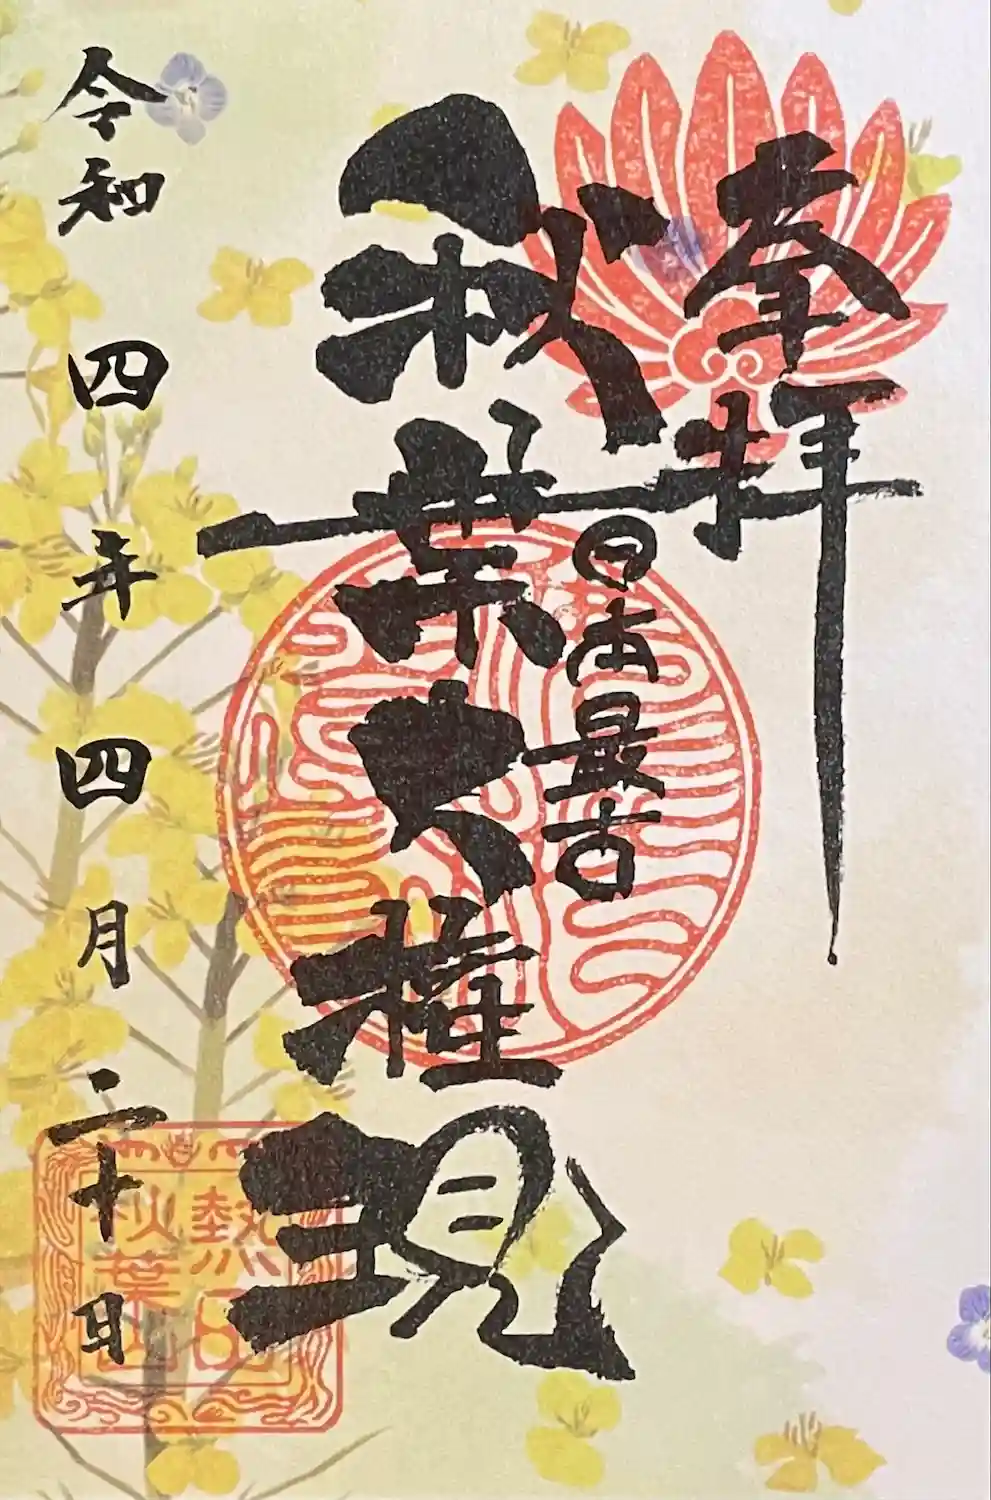 奉拝
日本最古
秋葉大権現
令和四年四月二十日
熱田
秋葉山